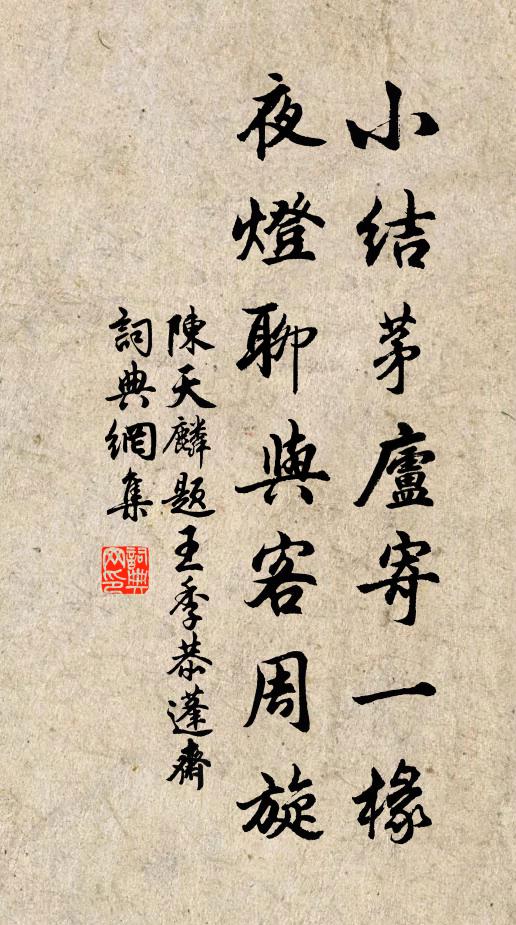 小結茅廬寄一椽
夜燈聊與客周旋
陳天麟題王季恭蓬齋
詞典網集
詞典网印